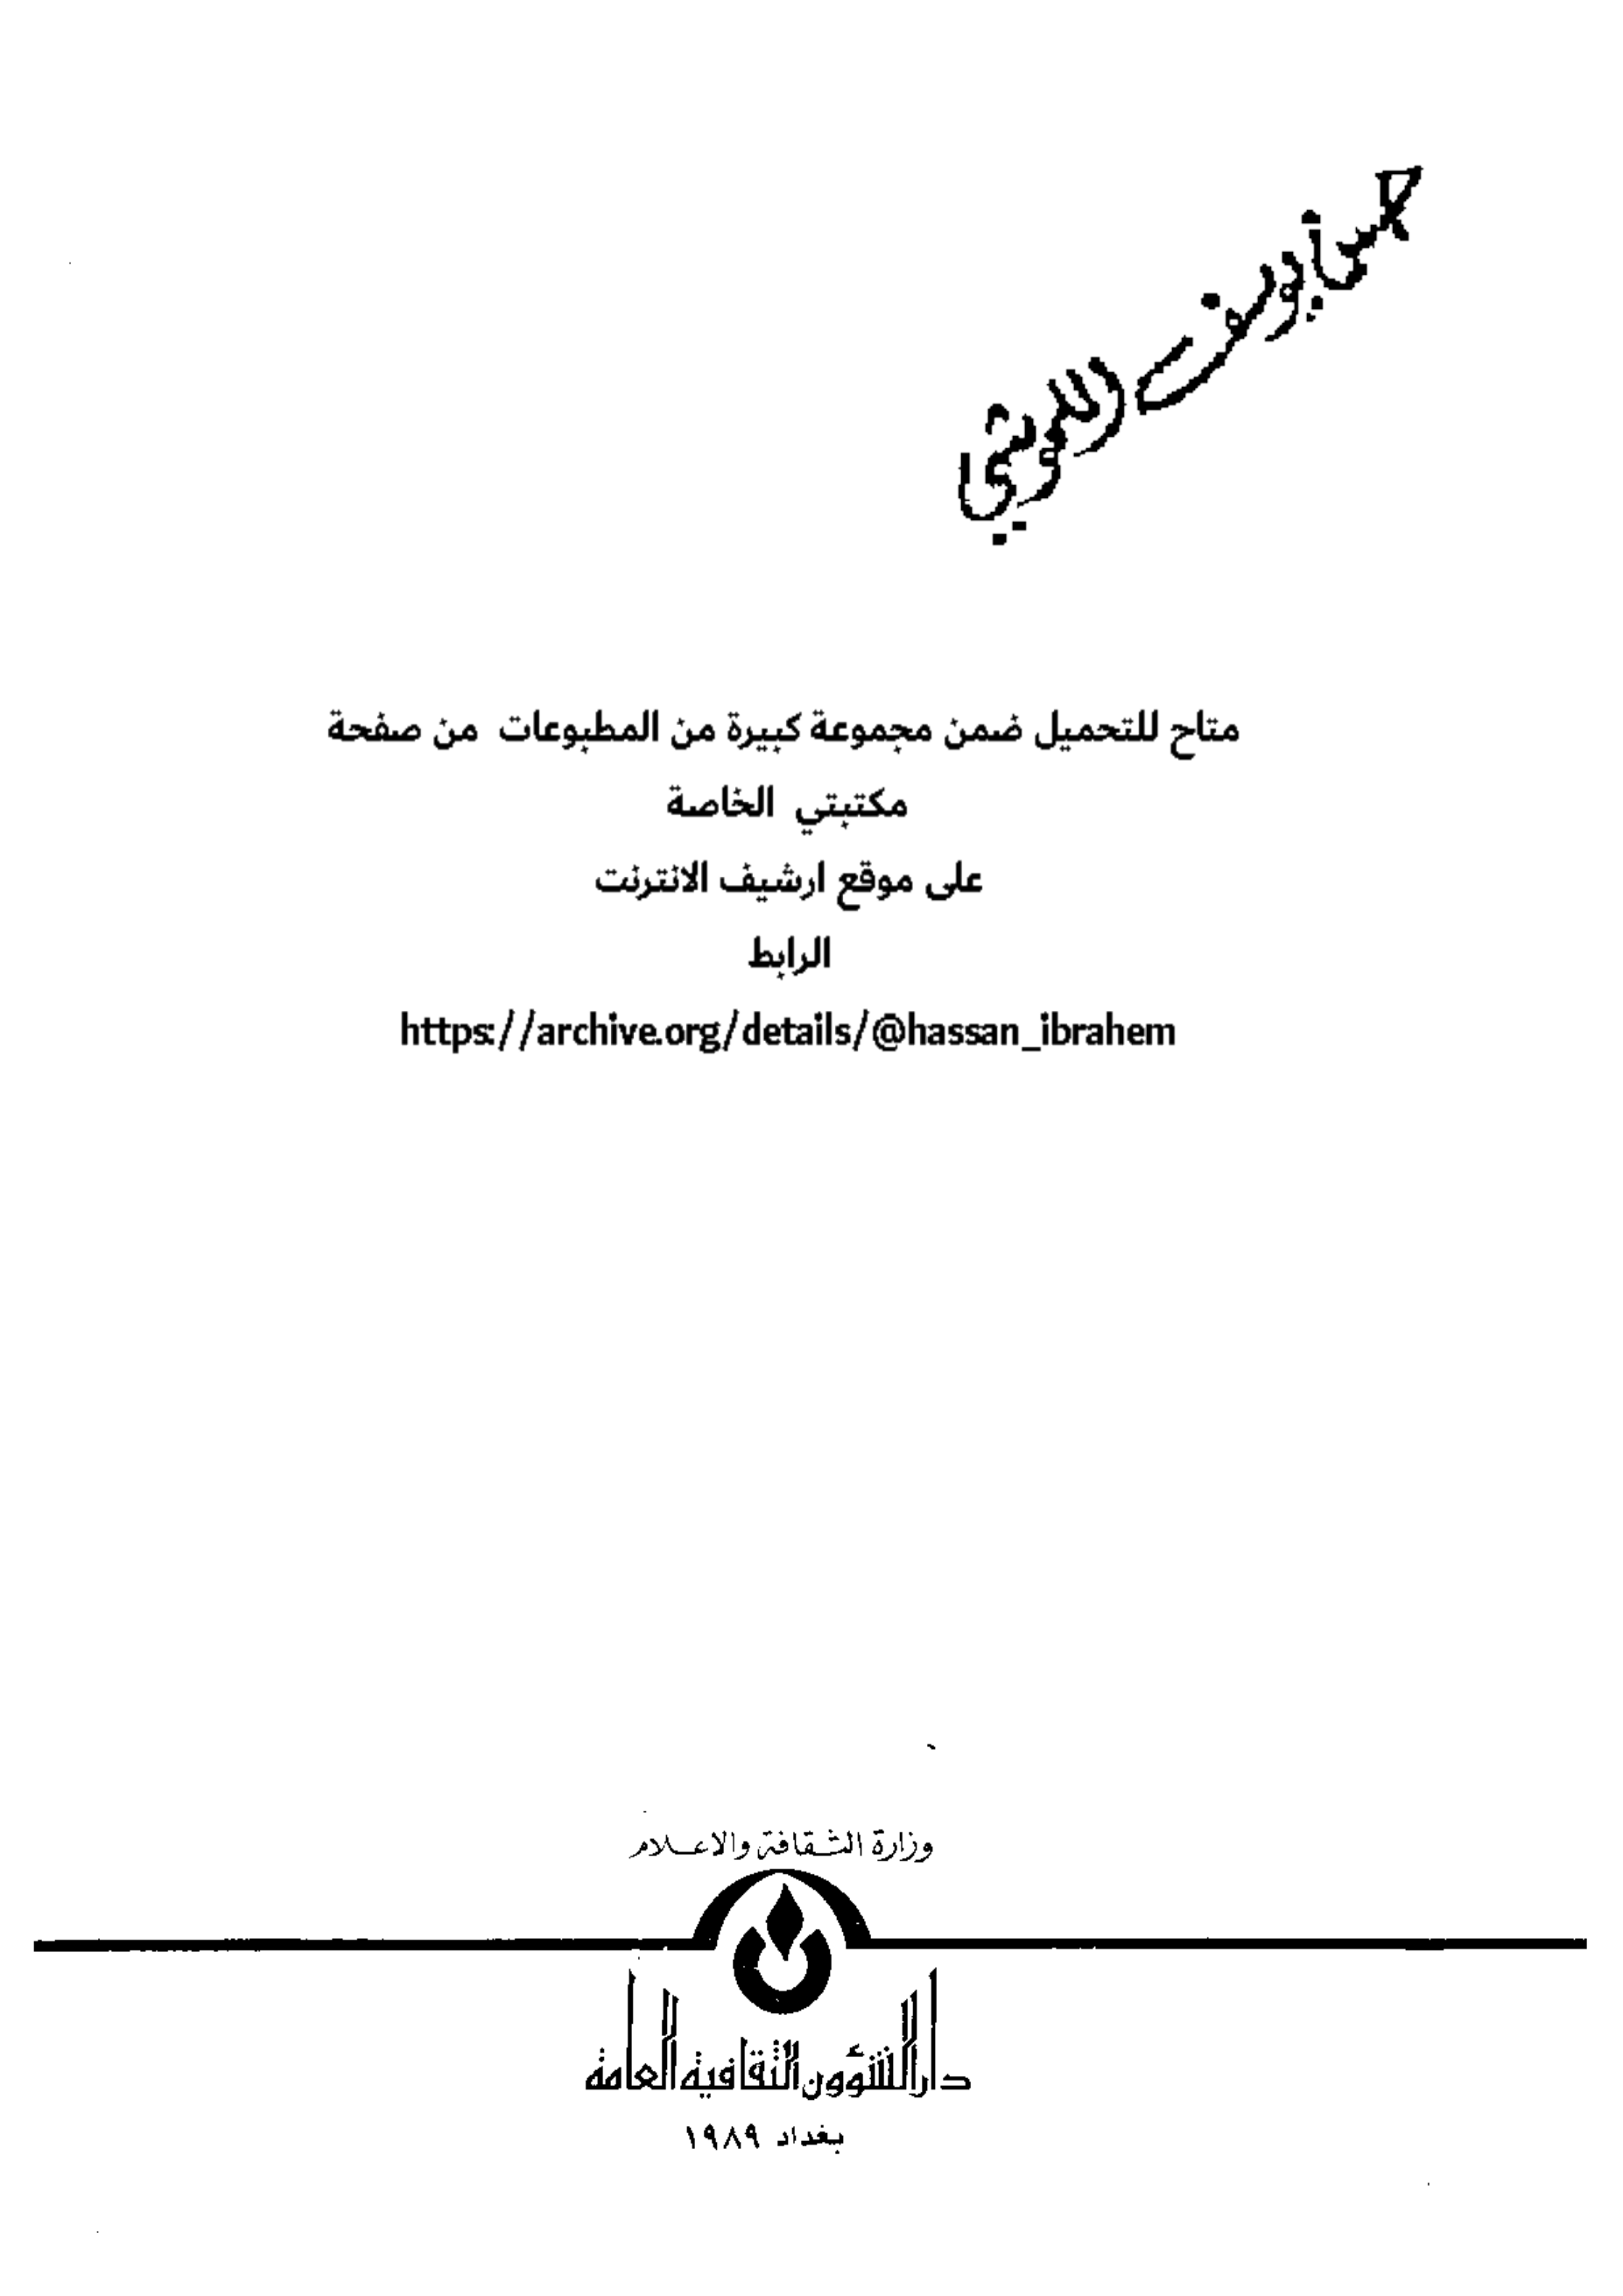 متاح للتحميل ضمن مجموعة كبيرة من المطبوعات من صفحة
مكتبتي الخاصة
على موقع ارشيف الانترنت
الرابط
https://archive.org/details/@hassan_ibrahem
وزارة الثقافة والاعلام
دار الشؤون الثقافية العامة
بغداد ١٩٨٩